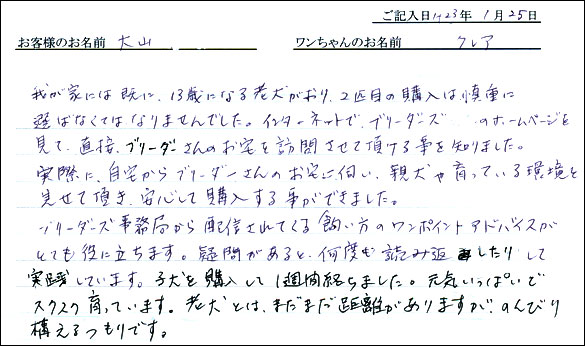 ご記入日 H23年 1月25日
お客様のお名前 大山 ワンちゃんのお名前 クレア
我が家には既に、13歳になる老犬がおり、2匹目の購入は慎重に
選ばなくてはなりませんでした。インターネットで、ブリーダーズ のホームページを
見て、直接、ブリーダーさんのお宅を訪問させて頂ける事を知りました。
実際に、自宅からブリーダーさんのお宅に伺い、親犬や育っている環境を
見せて頂き、安心して購入する事ができました。
ブリーダーズ事務局から配信されてくる飼い方のワンポイントアドバイスが
とても役に立ちます。疑問があると、何度も読み返したりして
実践しています。子犬を購入して1週間経ちました。元気いっぱいで
スクスク育っています。老犬とは、まだまだ距離がありますが、のんびり
構えるつもりです。